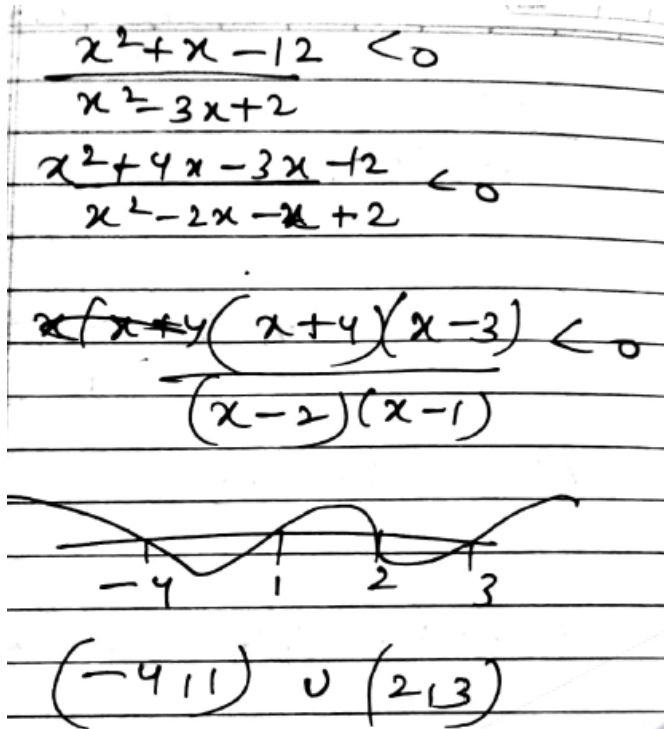 x² + x - 12 < 0
x² - 3x + 2
x² + 4x - 3x - 12 < 0
x² - 2x - x + 2
(x+4)(x-3) < 0
(x-2)(x-1)
-4 1 2 3
(-4,1) ∪ (2,3)